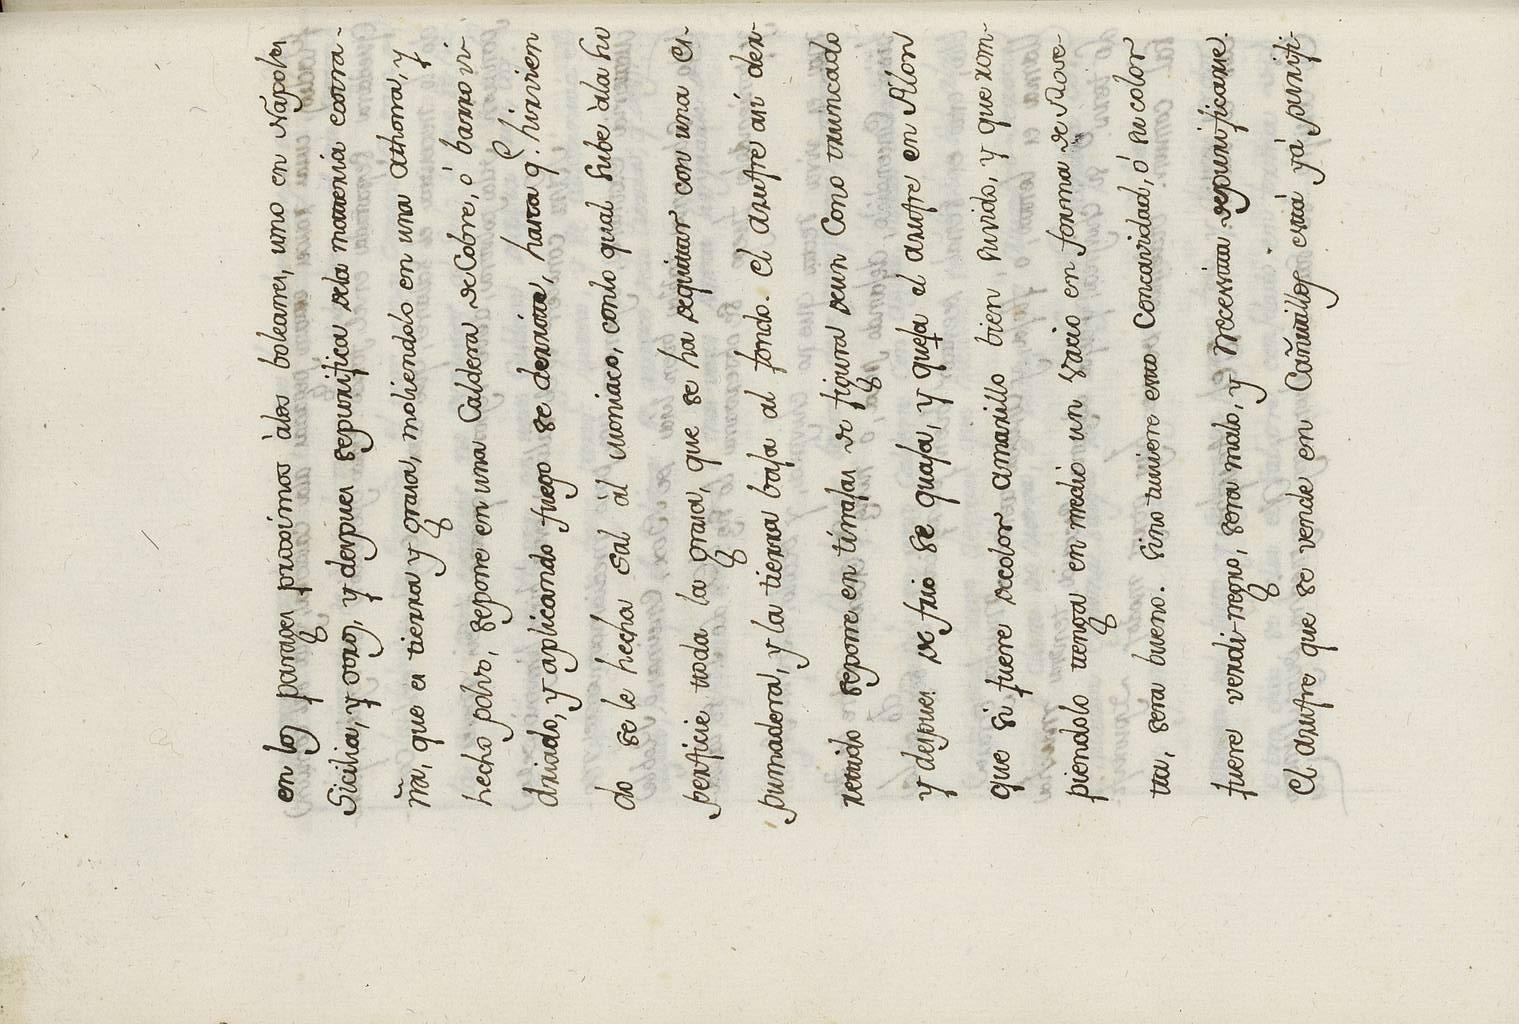 en los parages proximos à los bolcanes, uno en Nãpoles
Sicilia, y otros, y despues sepurifica dela materia estra-
ña, que es tierra y grasa, moliendolo en una Athona, y
hecho polvo, sepone en una Caldera de Cobre, ó barro vi-
driado, y aplicando fuego se derrite, hasta q.e hirvien
do se le hecha Sal al moniaco, con lo qual sube àla Su
perficie toda la grasa, que se ha dequitar con una es-
pumadera, y la tierra baja al fondo. El azufre así der-
retido sepone en tinajas de figura deun Cono truncado
y despues de frio se quaja, y queda el azufre en Pilon
que si fuere decolor amarillo bien subido, y que rom-
piendolo tenga en medio un vacio en forma de Rose-
ta, sera bueno. Sino tuviere esta Concavidad, ó su color
fuere verdi-negro, sera malo, y Necesita depurificarse.
El azufre que se vende en Cañutillos está yá purifi-